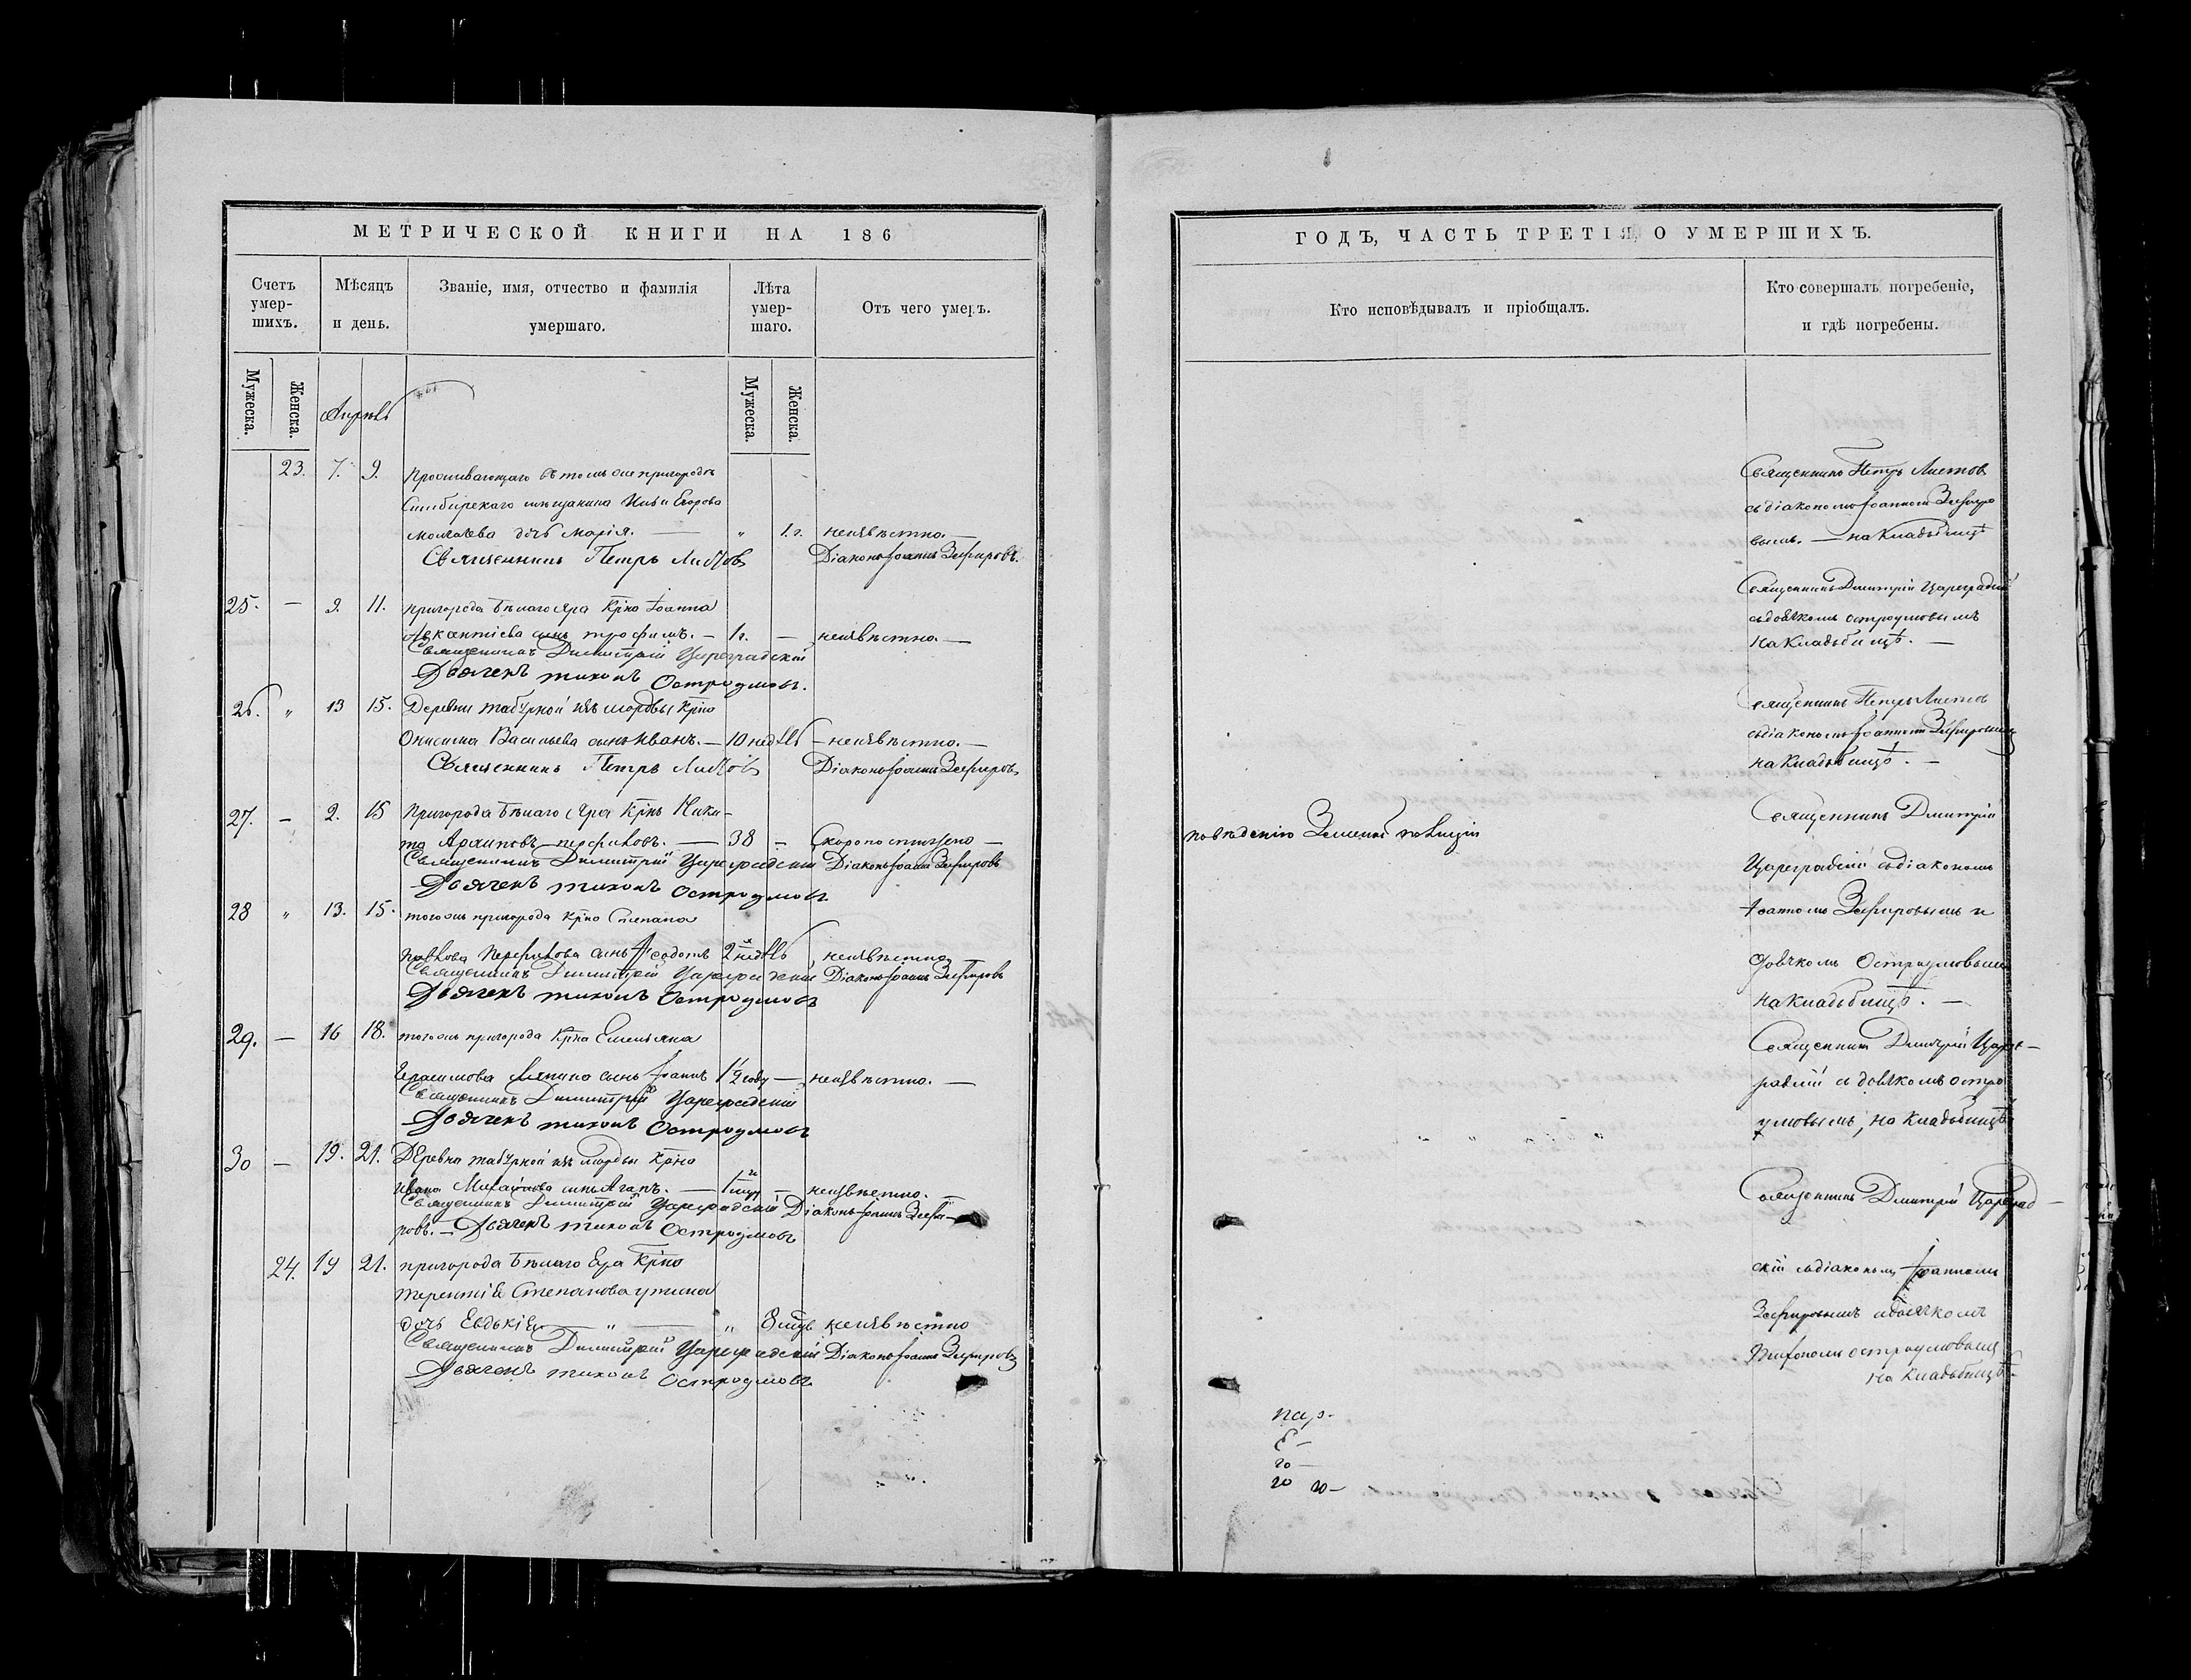 МЕТРИЧЕСКОЙ КНИГИ НА 186
Счетъ умер-шихъ.
Мѣсяцъ и день.
Званіе, имя, отчество и фамилія умершаго.
Лѣта умер-шаго.
Отъ чего умеръ.
Мужеска.
Женска.
Апрель
Мужеска.
Женска.
23. 7. 9. Проживающаго въ томъ же пригородѣ
Симбирскаго мѣщанина Ильи Егорова
дочь Марія. — " 1 г. неизвѣстно. —
Священникъ Петръ Листовъ Діаконъ Іоаннъ Зефировъ.
25. — 9. 11. пригорода Бѣлаго Яра Кр̃на Іоанна
Авксентіева сынъ Трофимъ. — 1 г. — неизвѣстно. —
Священникъ Димитрій Цареградскій
Дьячекъ Тихонъ Остроумовъ.
26. " 13 15. Деревни Табурной изъ мордвы Кр̃на
Онисима Васильева сынъ Иванъ. — 10 недѣль — неизвѣстно. —
Священникъ Петръ Листовъ Діаконъ Іоаннъ Зефировъ
27. — 2. 15 Пригорода Бѣлаго Яра Кр̃нъ Ники-
та Архиповъ Перфиловъ. — 38 — Скоропостижно —
Священникъ Димитрій Цареградскій Діаконъ Іоаннъ Зефировъ
Дьячекъ Тихонъ Остроумовъ
28 " 13. 15. тогожъ пригорода Кр̃на Степана
Павлова Перфилова сынъ Ѳеодотъ 2 недѣль неизвѣстно
Священникъ Димитрій Цареградскій Діаконъ Іоаннъ Зефировъ
Дьячекъ Тихонъ Остроумовъ
29. — 16 18. тогожъ пригорода Кр̃на Емельяна
Герасимова сынъ Іоаннъ 1½ году — неизвѣстно. —
Священникъ Димитрій Цареградскій
Дьячекъ Тихонъ Остроумовъ
30 — 19. 21. Деревни Табурной изъ мордвы Кр̃на
Ивана Михайлова сынъ Агапъ. — — неизвѣстно.
Священникъ Димитрій Цареградскій Діаконъ Іоаннъ Зефи-
ровъ. — Дьячекъ Тихонъ Остроумовъ
24. 19 21. пригорода Бѣлаго Яра Кр̃на
Терентія Степанова
дочь Евдокія — " — " 8 мцъ неизвѣстно
Священникъ Димитрій Цареградскій Діаконъ Іоаннъ Зефировъ
Дьячекъ Тихонъ Остроумовъ
ГОДЪ, ЧАСТЬ ТРЕТІЯ, О УМЕРШИХЪ.
Кто исповѣдывалъ и пріобщалъ.
Кто совершалъ погребеніе, и гдѣ погребены.
Священникъ Петръ Листовъ
съ діакономъ Іоанномъ Зефиро
вымъ. — на Кладбищѣ
Священникъ Дмитрій Цареградскій
съ дьячкомъ Остроумовымъ
на Кладьбищѣ. —
Священникъ Петръ Листовъ
съ діакономъ Іоанномъ Зефировымъ
на Кладьбищѣ. —
Священникъ Дмитрій
по вѣденію Земской полиціи
Цареградскій съ діакономъ
Іоанномъ Зефировымъ и
дьячкомъ Остроумовымъ
на Кладьбищѣ. —
Священникъ Дмитрій Царег-
радскій съ дьячкомъ Остро
умовымъ, на Кладьбищѣ
Священникъ Дмитрій Цареград-
скій съ діакономъ Іоанномъ
Зефировымъ и дьячкомъ
Тихономъ Остроумовымъ
на Кладьбищѣ.